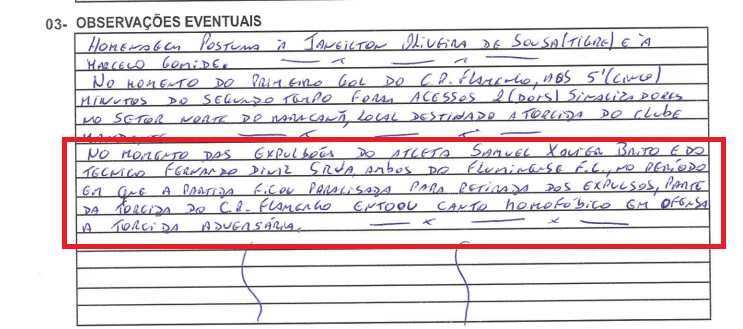 03- OBSERVAÇÕES EVENTUAIS
HOMENAGEM POSTUMA À JANEILTON OLIVEIRA DE SOUSA (TIGRE) E À
MARCELO GOMIDE. — x — x —
NO MOMENTO DO PRIMEIRO GOL DO C.R. FLAMENGO, AOS 5' (CINCO)
MINUTOS DO SEGUNDO TEMPO FORAM ACESSOS 2 (DOIS) SINALIZADORES
NO SETOR NORTE DO MARACANÃ, LOCAL DESTINADO A TORCIDA DO CLUBE
MANDANTE — x — x —
NO MOMENTO DAS EXPULSÕES DO ATLETA SAMUEL XAVIER BRITO E DO
TECNICO FERNANDO DINIZ SILVA, AMBOS DO FLUMINENSE F.C., NO PERÍODO
EM QUE A PARTIDA FICOU PARALISADA PARA RETIRADA DOS EXPULSOS, PARTE
DA TORCIDA DO C.R. FLAMENGO ENTOOU CANTO HOMOFÓBICO EM OFENSA
A TORCIDA ADVERSÁRIA. — x — x —